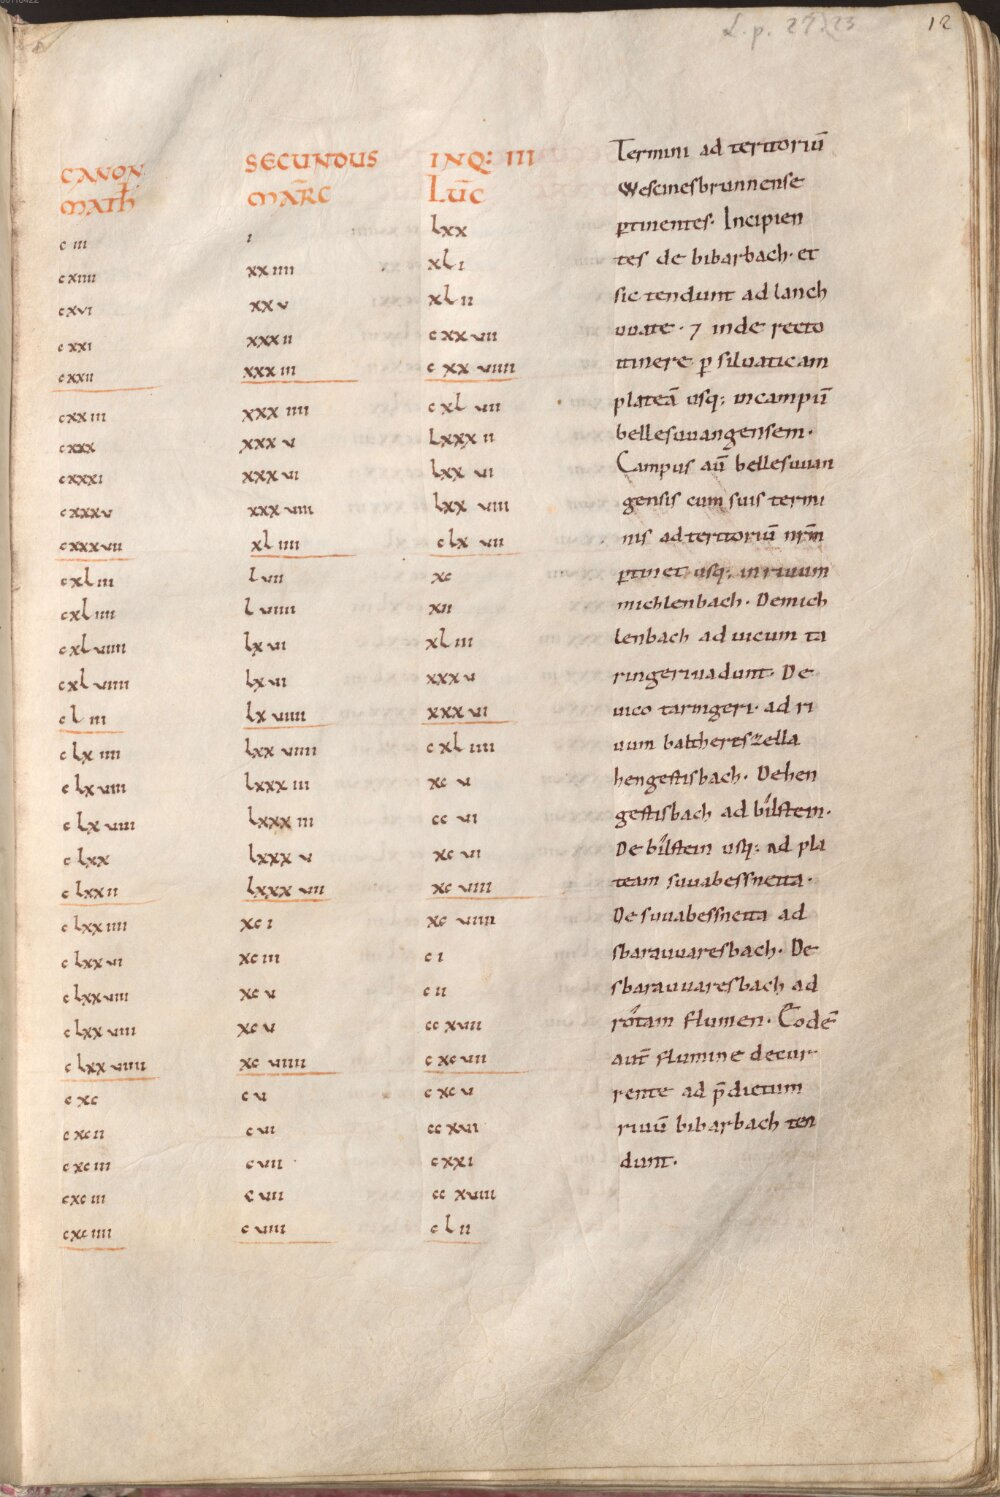 L. p. 27. 23
12
CANON SECUNDUS INQ: III
MATH MARC LUC
c iii i lxx
cxiiii xxiiii xl i
cxvi xxv xl ii
cxxi xxxii cxxvii
cxxii xxxiii cxxviiii
cxxiii xxxiiii cxlvii
cxxx xxxv lxxxii
cxxxi xxxvi lxxvi
cxxxv xxxviii lxxviii
cxxxvii xliiii clxvii
cxliii lvii xc
cxliiii lviiii xii
cxlviiii lxvi xliii
cxlviiii lxvi xxxv
cliii lxviiii xxxvi
clxiiii lxxviiii cxliiii
clxviii lxxxiii xcv
clxviiii lxxxiii ccvi
clxx lxxxv xcvi
clxxii lxxxvii xcviiii
clxxiiii xci xcviiii
clxxvi xciii ci
clxxviii xcv cii
clxxviiii xcv ccxvii
clxxviiii xcviiii cxcvii
cxc cv cxcv
cxcii cvi ccxvi
cxciii cvii cxxi
cxciii cvii ccxviii
cxciiii cviiii clii
Termini ad territoriū
Wescinesbrunnense
ꝑtinentes· Incipien
tes de bibarbach· et
sic tendunt ad lanch
uuate· ⁊ inde recto
itinere ꝑ siluaticam
plateā usq; incampū
bellesuuangensem·
Campus aū bellesuuan
gensis cum suis termi
nis ad territoriū nrm̄
ꝑtinet usq; in riuum
michlenbach· De mich
lenbach ad uicum ta
ringeri uadunt· De
uico taringeri· ad ri
uum balthertszella
hengestisbach· De hen
gestisbach ad bilstein·
De bilstein usq; ad pla
team suuabessneitta·
De suuabessneitta ad
sbarauuaresbach· De
sbarauuaresbach ad
rótam flumen· Eodē
aut̄ flumine decur
rente ad p̄dictum
riuū bibarbach ten
dunt·